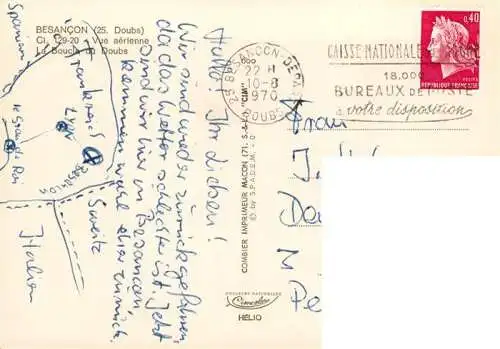 BESANÇON (25. Doubs)
Ci. 129-20 - Vue aérienne
La Boucle du Doubs
Hallo! Ihr Lieben!
Wir sind wieder zurückgefahren,
da das Wetter schlecht ist. Jetzt
sind wir hier in Besancon
kommen mal eher zurück.
Spanien
Frankreich
Lyon
le Grau du Roi
Besancon
Sweitz
Italien
COMBIER IMPRIMEUR MACON (71. S.-&-L.) "CIM"
© by S.P.A.D.E.M.
COULEURS NATURELLES
Cimcolor
HELIO
25 BESANCON DEPART
22 H
10-8
1970
DOUBS
CAISSE NATIONALE
18.000
BUREAUX DE POSTE
à votre disposition
0,40
REPUBLIQUE FRANÇAISE
Frau
J.
Da
M
Pe